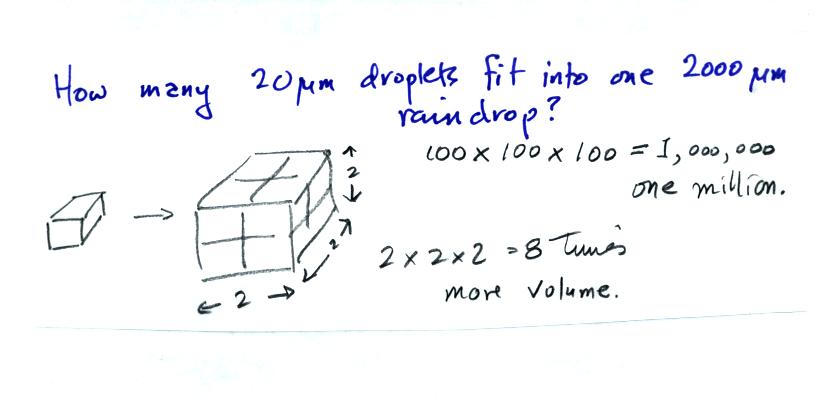 How many 20 μm droplets fit into one 2000 μm
raindrop?
100 x 100 x 100 = 1,000,000
one million.
2
2
2
2 x 2 x 2 = 8 times
more volume.